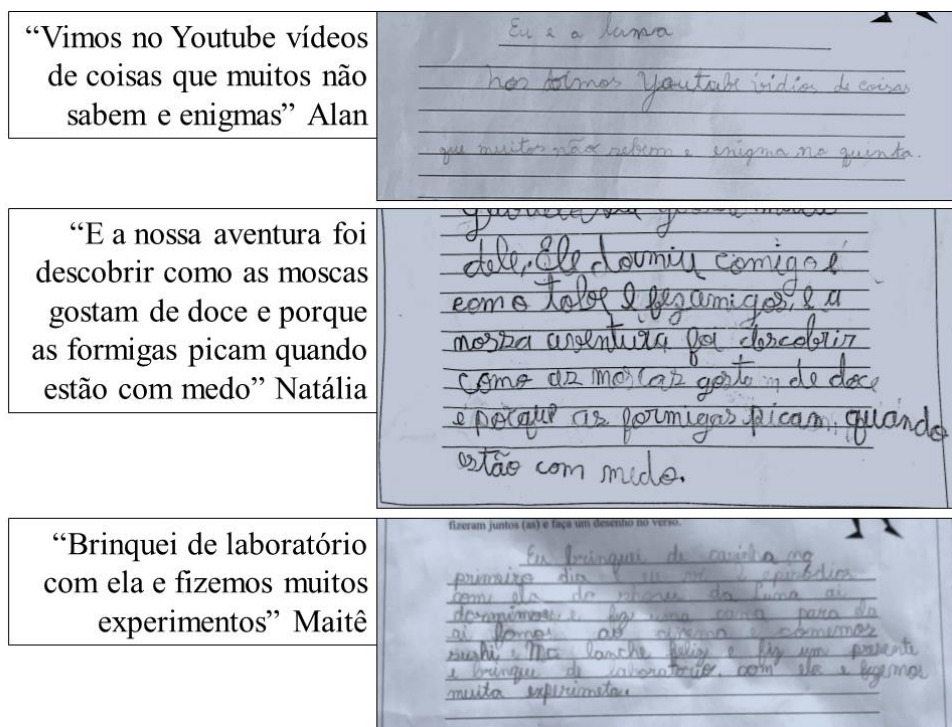 “Vimos no Youtube vídeos
de coisas que muitos não
sabem e enigmas” Alan
Eu e a luna
nos vimos Youtube vidios de coisas
que muitos não sebem e enigma na quinta.
“E a nossa aventura foi
descobrir como as moscas
gostam de doce e porque
as formigas picam quando
estão com medo” Natália
dele, Ele dormiu comigo e
com o tobe e fez amigos, e a
nossa aventura foi descobrir
como as moscas gostam de doce
e porque as formigas picam, quando
estão com medo.
“Brinquei de laboratório
com ela e fizemos muitos
experimentos” Maitê
fizeram juntos (as) e faça um desenho no verso.
Eu brinquei de casinha no
primeiro dia e eu vi 2 episódios
com ela do show da luna ai
dormimos e fiz uma cama para ela
ai fomos ao cinema e comemos
sushi e Mc lanche feliz e fiz um presente
e brinquei de laboratorio. com ela e fizemos
muita experimetos.